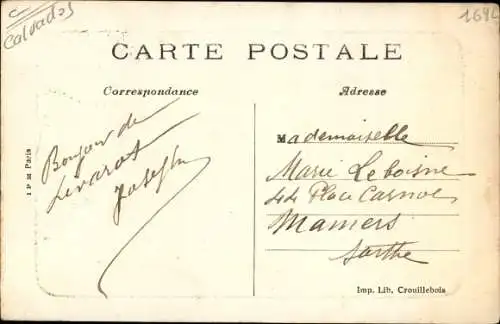 Calvados
1694
CARTE POSTALE
Correspondance
Adresse
Bonjour de
Livarot
Joseph
Mademoiselle
Marie Leboisne
44 Place Carnot
Mamers
Sarthe
Imp. Lib. Crouillebois